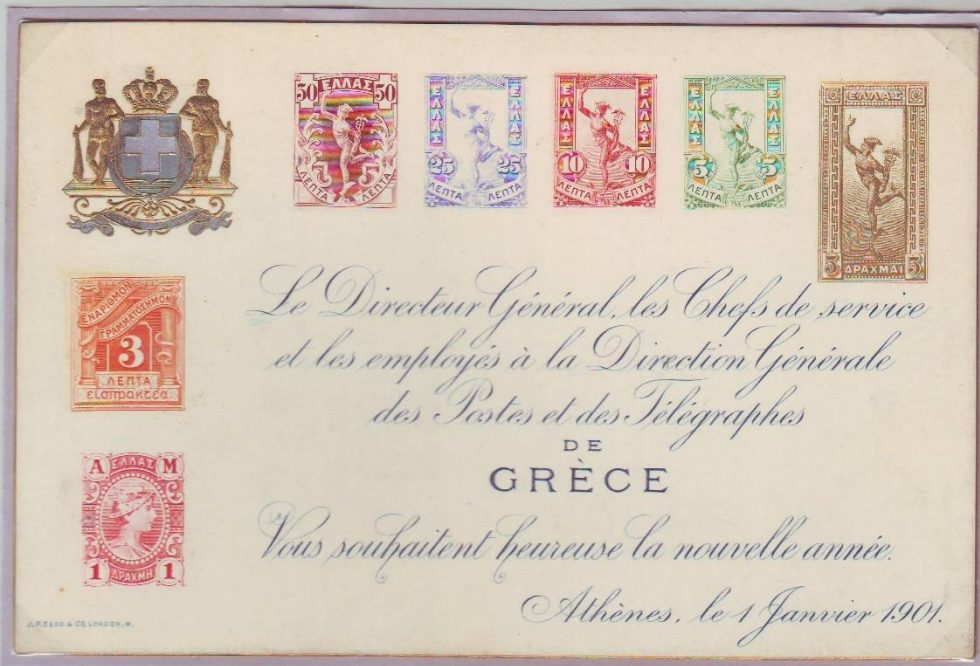 50 ΕΛΛΑΣ 50
ΛΕΠΤΑ ΛΕΠΤΑ
ΕΛΛΑΣ ΕΛΛΑΣ
25 25
ΛΕΠΤΑ ΛΕΠΤΑ
ΕΛΛΑΣ ΕΛΛΑΣ
10 10
ΛΕΠΤΑ ΛΕΠΤΑ
ΕΛΛΑΣ ΕΛΛΑΣ
5 5
ΛΕΠΤΑ ΛΕΠΤΑ
ΕΛΛΑΣ
5 ΔΡΑΧΜΑΙ 5
ΕΝΑΡΙΘΜΟΝ
ΓΡΑΜΜΑΤΟΣΗΜΟΝ
3
ΛΕΠΤΑ
εἰσπρακτέα
Α ΕΛΛΑΣ Μ
1 ΔΡΑΧΜΗ 1
Le Directeur Général, les Chefs de service
et les employés à la Direction Générale
des Postes et des Télégraphes
DE
GRÈCE
Vous souhaitent heureuse la nouvelle année.
Athènes, le 1 Janvier 1901.
LONDON, W.